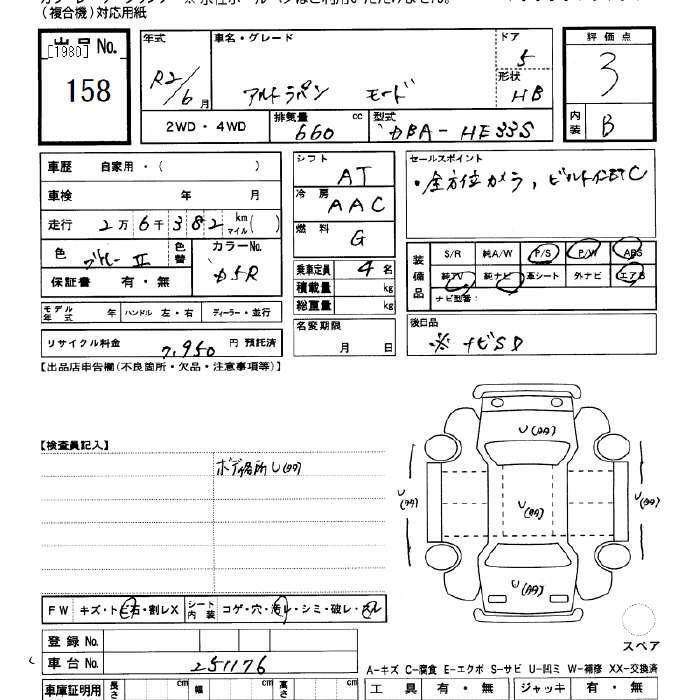 (複合機)対応用紙
出品No.
[1980]
158
年式
R2/6月
車名・グレード
アルトラパン モード
ドア
5
形状
HB
評価点
3
内装
B
2WD・4WD
排気量
660
cc
型式
DBA-HE33S
車歴 自家用・( )
車検 年 月
走行 2万6千382 km マイル( )
色
グレーⅡ
色替
カラーNo.
ZSR
保証書 有・無
モデル年式 年 ハンドル 左・右 ディーラー・並行
リサイクル料金 7,950円 預託済
シフト
AT
冷房
AAC
燃料
G
乗車定員 4 名
積載量 kg
総重量 kg
名変期限
月 日
セールスポイント
・全方位カメラ, ビルトインETC
装備品
S/R 純A/W P/S P/W ABS
純TV 純ナビ 革シート 外ナビ エアB
ナビ型番:
後日品
※ナビSD
【出品店申告欄(不良箇所・欠品・注意事項等)】
【検査員記入】
ボデ各所U(凹)
U(凹)
U(凹)
U(凹)
U(凹)
U(凹)
FW キズ・トビ石・割レX シート内装 コゲ・穴・汚レ・シミ・破レ・スレ
登録No.
車台No. 251176
車庫証明用 長さ cm 幅 cm 高さ cm
スペア
A-キズ C-腐食 E-エクボ S-サビ U-凹ミ W-補修 XX-交換済
工具 有・無 ジャッキ 有・無